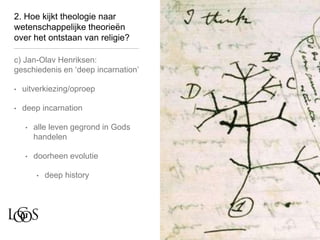 2. Hoe kijkt theologie naar
wetenschappelijke theorieën
over het ontstaan van religie?
c) Jan-Olav Henriksen:
geschiedenis en 'deep incarnation'
• uitverkiezing/oproep
• deep incarnation
• alle leven gegrond in Gods
handelen
• doorheen evolutie
• deep history
LOGOS
I think
B
D
A
1